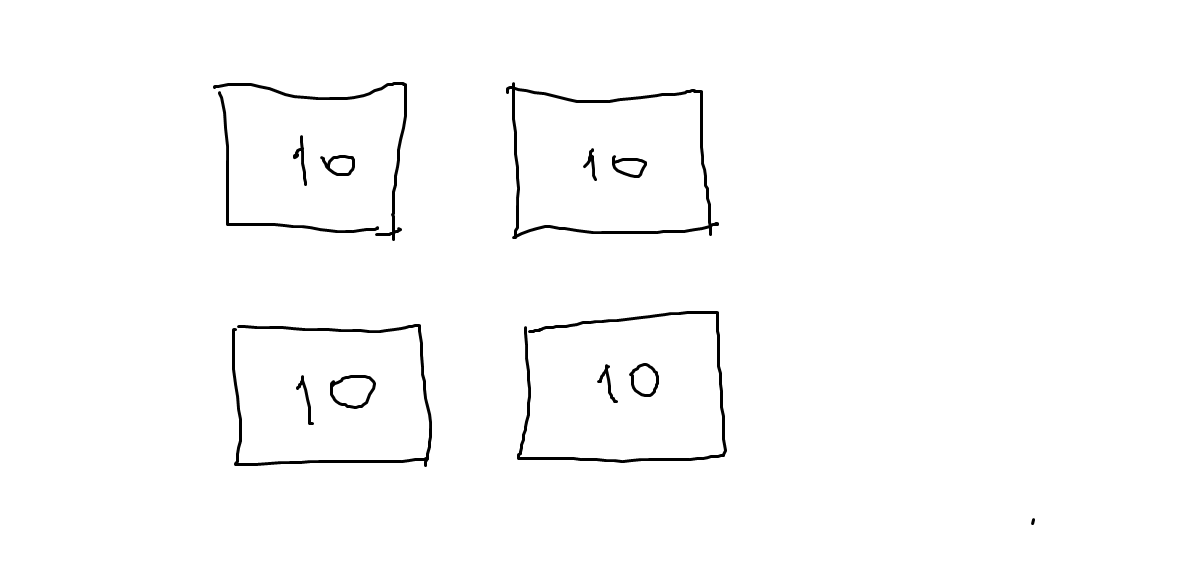 10 10
10 10